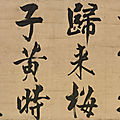 歸来梅
子黄時